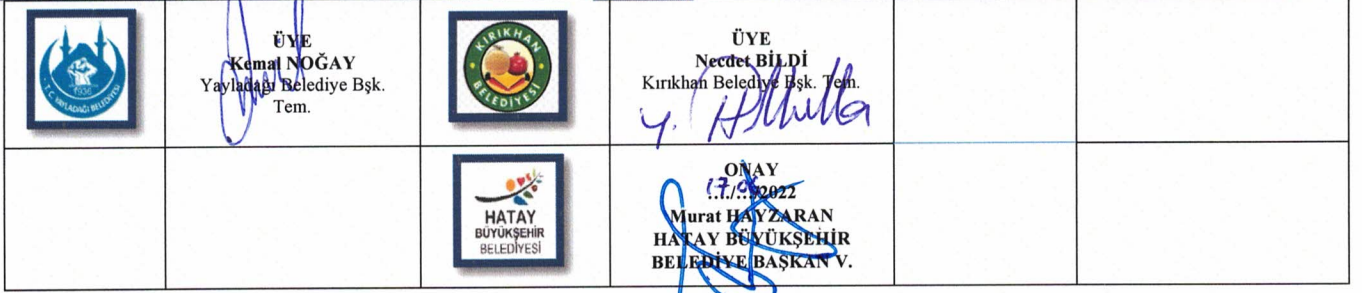 1936
T.C. YAYLADAĞI BELEDİYESİ
ÜYE
Kemal NOĞAY
Yayladağı Belediye Bşk.
Tem.
KIRIKHAN
BELEDİYESİ
ÜYE
Necdet BİLDİ
Kırıkhan Belediye Bşk. Tem.
HATAY
BÜYÜKŞEHİR
BELEDİYESİ
ONAY
17.06
.../.../2022
Murat HAYZARAN
HATAY BÜYÜKŞEHİR
BELEDİYE BAŞKAN V.